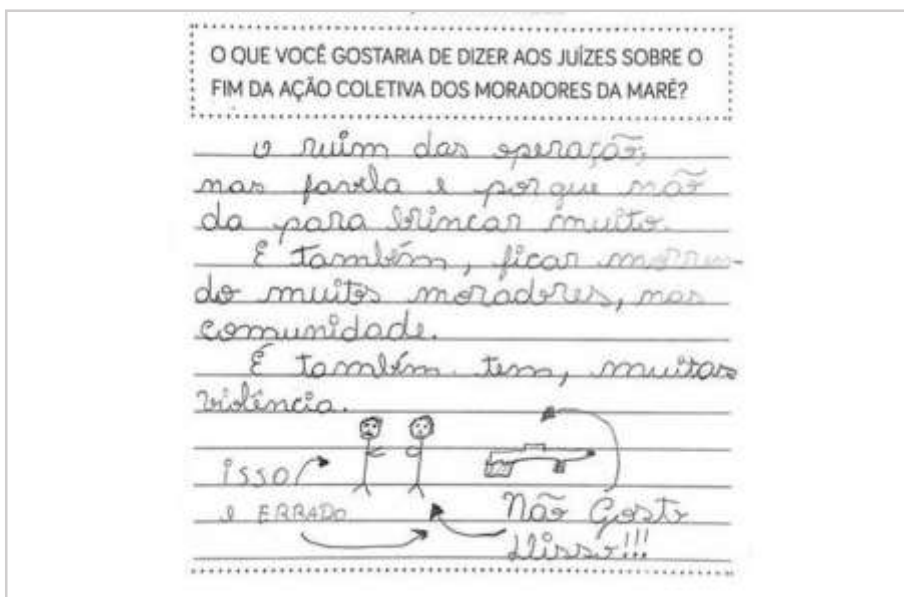 O QUE VOCÊ GOSTARIA DE DIZER AOS JUÍZES SOBRE O
FIM DA AÇÃO COLETIVA DOS MORADORES DA MARÉ?
O ruim das operação,
nas favela e porque não
da para brincar muito.
E também, ficar morren-
do muitos moradores, nas
comunidade.
É também tem, muitas
violência.
isso
e ERRADO
Não Gosto
disso!!!